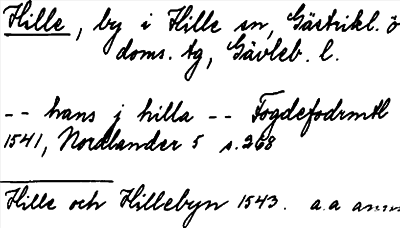 Hille, by i Hille sn, Gästrikl. ö
doms. tg, Gävleb. l.
-- hans j hilla -- Fogdefodrmtl
1541, Nordlander 5 s. 268
Hille och Hillebyn 1543. a.a